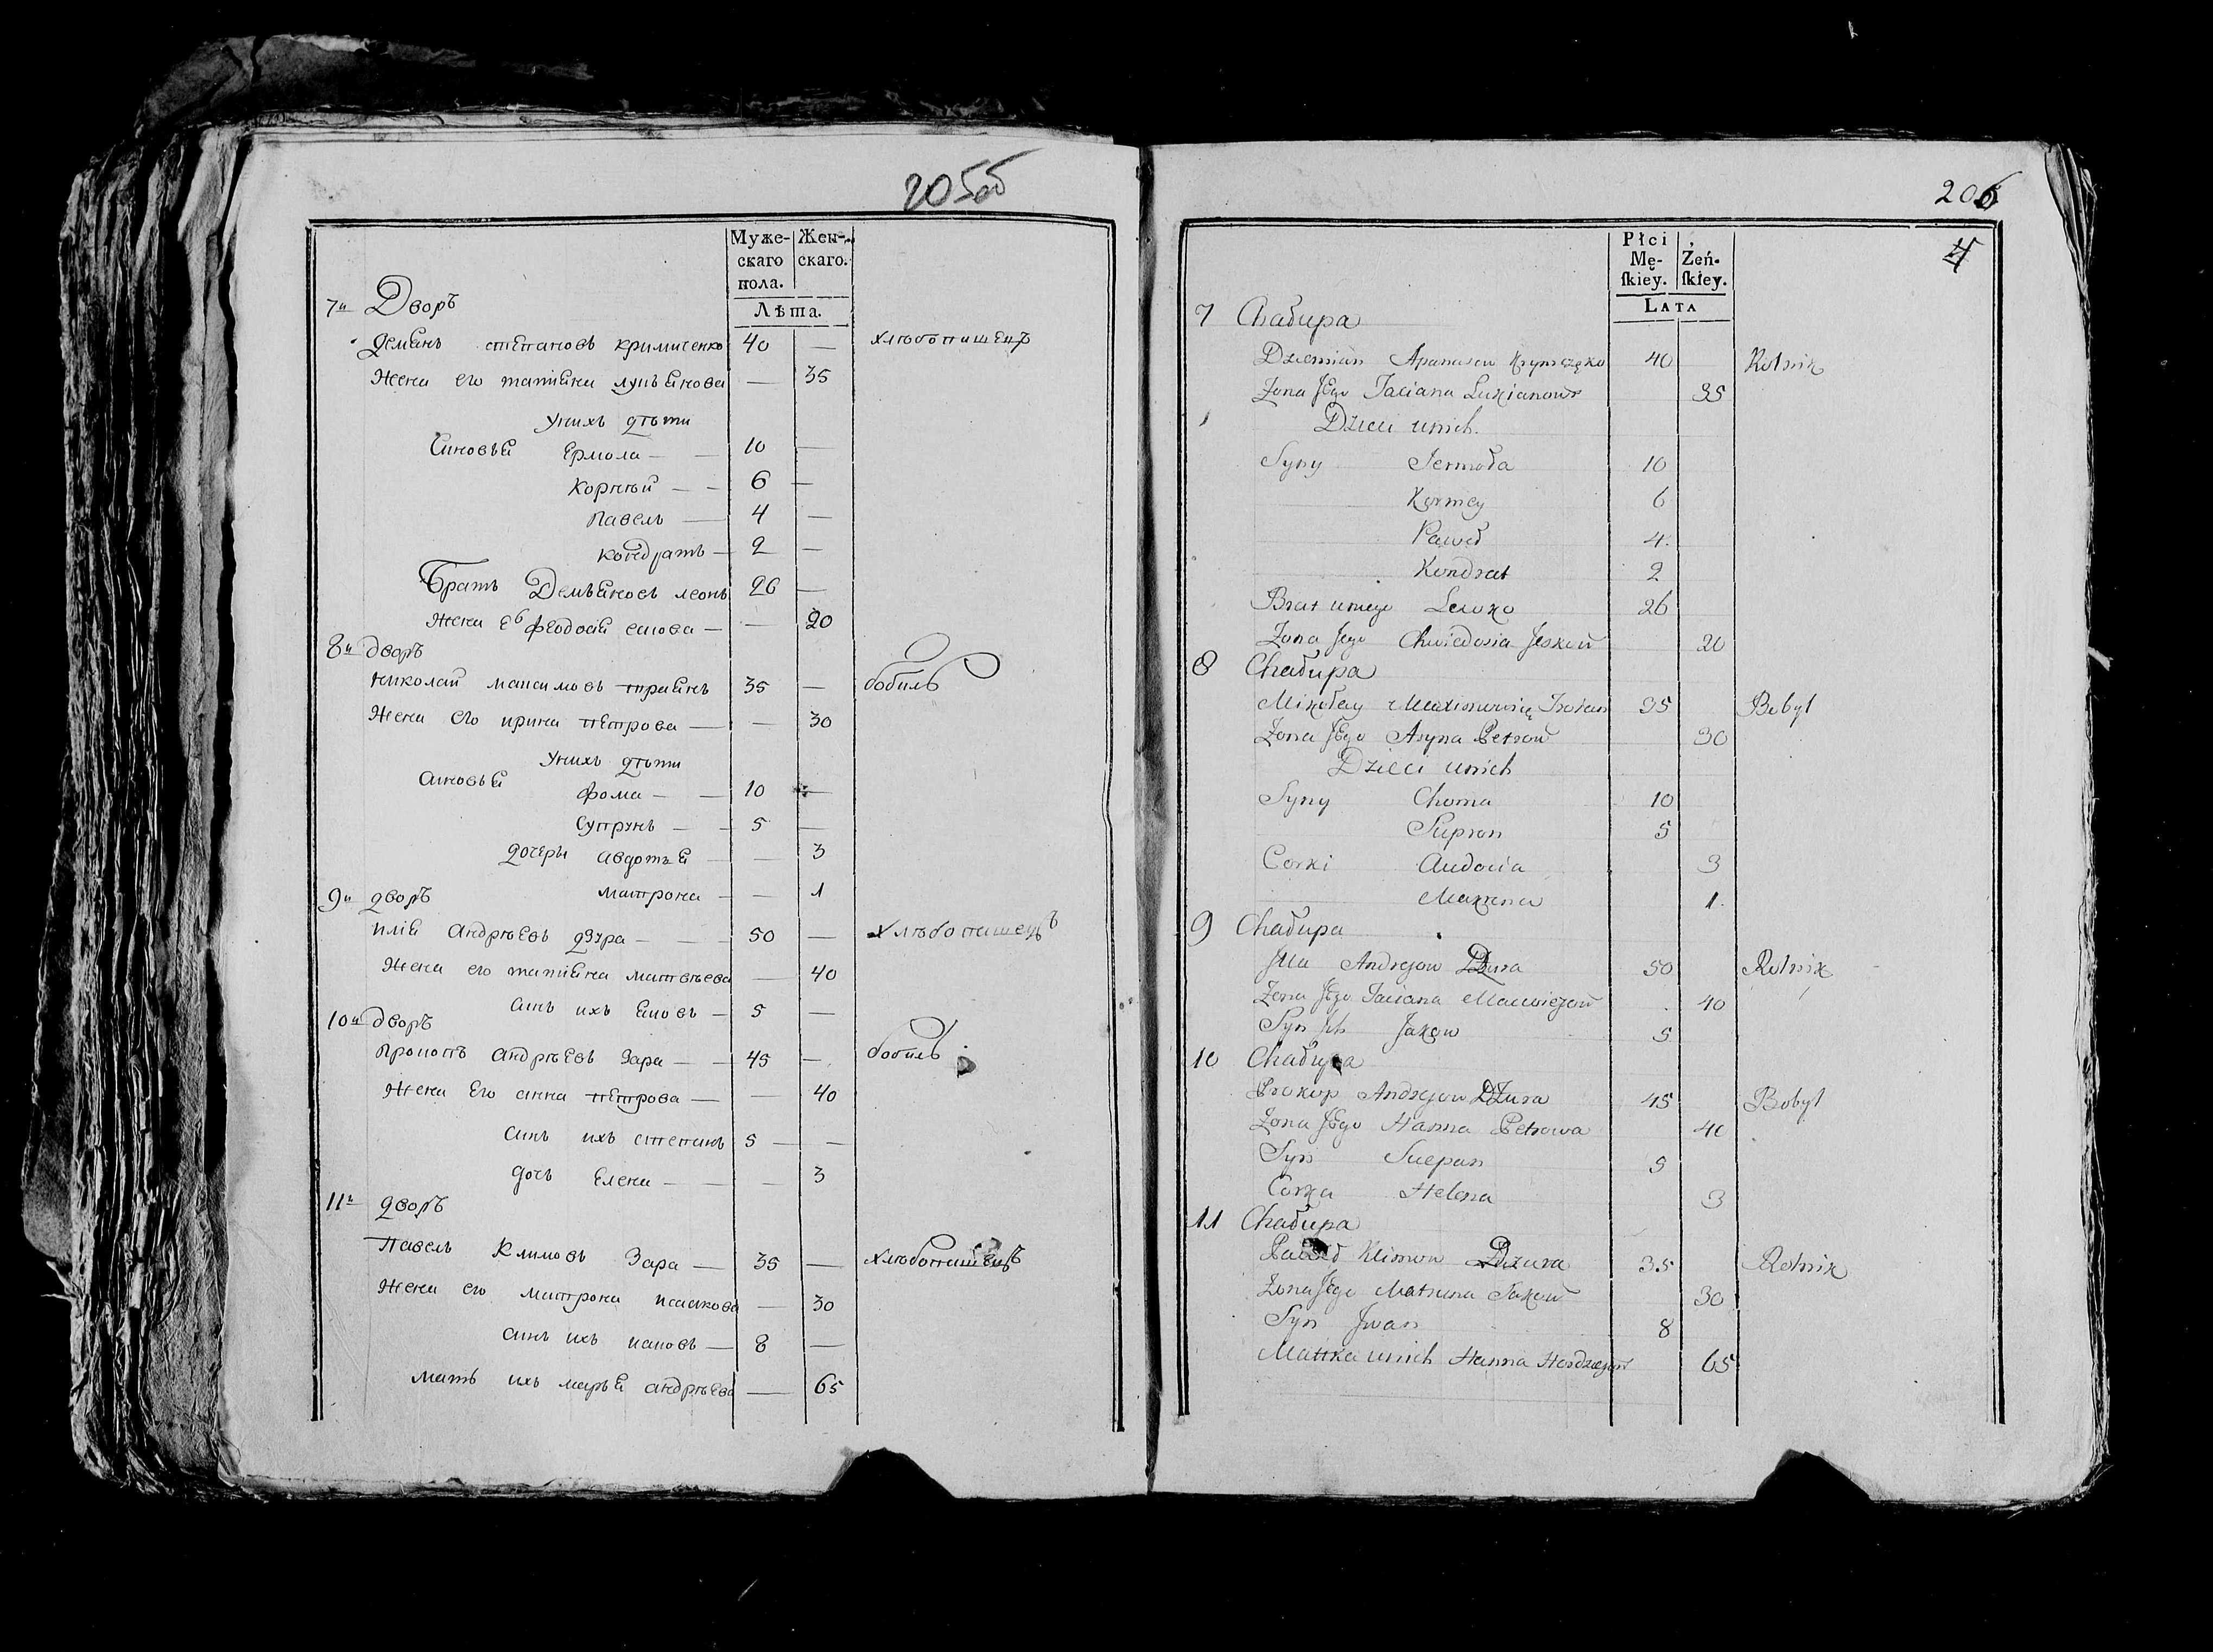 205об
Муже-
скаго
пола.
Жен-
скаго.
Лѣта.
7й Дворъ
Демянъ степановъ кримченко 40 — хлѣбопашецъ
Жена его татіяна лукъянова — 35
У нихъ дѣти
Синовья Ермола — — 10 —
корнѣй — — 6 —
павелъ — 4 —
кондратъ — 2 —
Братъ Демьяновъ леонъ 26 —
Жена его феодосія — — 20
8й дворъ
николай максимовъ 35 — бобиль
Жена его ирина петрова — — 30
У нихъ дѣти
Синовья фома — — 10 —
супрунъ — — 5 —
дочери авдотья — — 3
матрона — — 1
9й дворъ
илія андрѣевъ дзура — — — 50 — хлѣбопашецъ
Жена его татіяна матвѣева — 40
синъ ихъ яковъ — 5 —
10й дворъ
прокопъ андрѣевъ Зара — — 45 — бобиль
Жена Его анна петрова — — 40
синъ ихъ степанъ 5 — —
дочь Елена — — — 3
11й дворъ
павелъ климовъ Зара — 35 — хлѣбопашецъ
Жена его матрона исакова — 30
синъ ихъ — 8 —
мать ихъ марья андрѣева — 65
206
4
Płci
Mę-
ſkiey.
Żeń-
ſkiey.
LATA
7 Chałupa
Dziemian Apanasow Krymczęko 40 Rolnik
Zona Jego Taciana Lukianow 35
Dzieci unich
Syny Jermoła 10
Korney 6
Paweł 4
Kondrat 2
Brat unego Lewko 26
Zona Jego Chwiedosia Jeskow 20
8 Chałupa
Mikołay Maximowicz 35 Bobyl
Zona Jego Aryna Petrow 30
Dzieci unich
Syny Choma 10
Supron 5
Corki Audocia 3
1
9 Chałupa
Jlia Andrejow Dzura 50 Rolnik
Zona Jego Taciana Macwiejow 40
Syn Jch Jakow 5
10 Chałupa
Prokop Andrejow Dzura 45 Bobyl
Zona Jego Hanna Petrowa 40
Syn Sciepan 5
Corka Helena 3
11 Chałupa
Paweł Klimow Dzura 35 Rolnik
Zona Jego Matruna Jakow 30
Syn Jwan 8
Matka unich Hanna 65